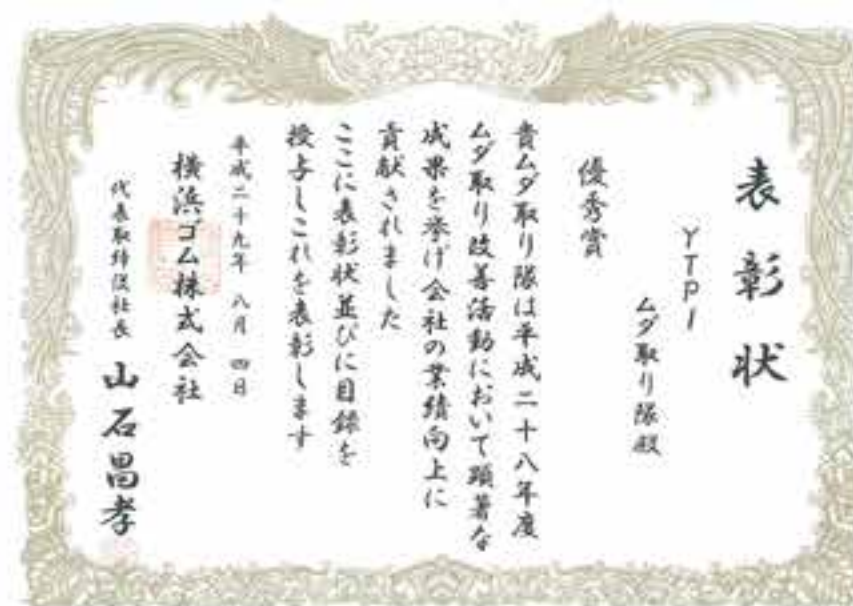 表彰状
YTPI
ムダ取り隊殿
優秀賞
貴ムダ取り隊は平成二十八年度
ムダ取り改善活動において顕著な
成果を挙げ会社の業績向上に
貢献されました
ここに表彰状並びに目録を
授与しこれを表彰します
平成二十九年 八月 四日
横浜ゴム株式会社
代表取締役社長 山石昌孝